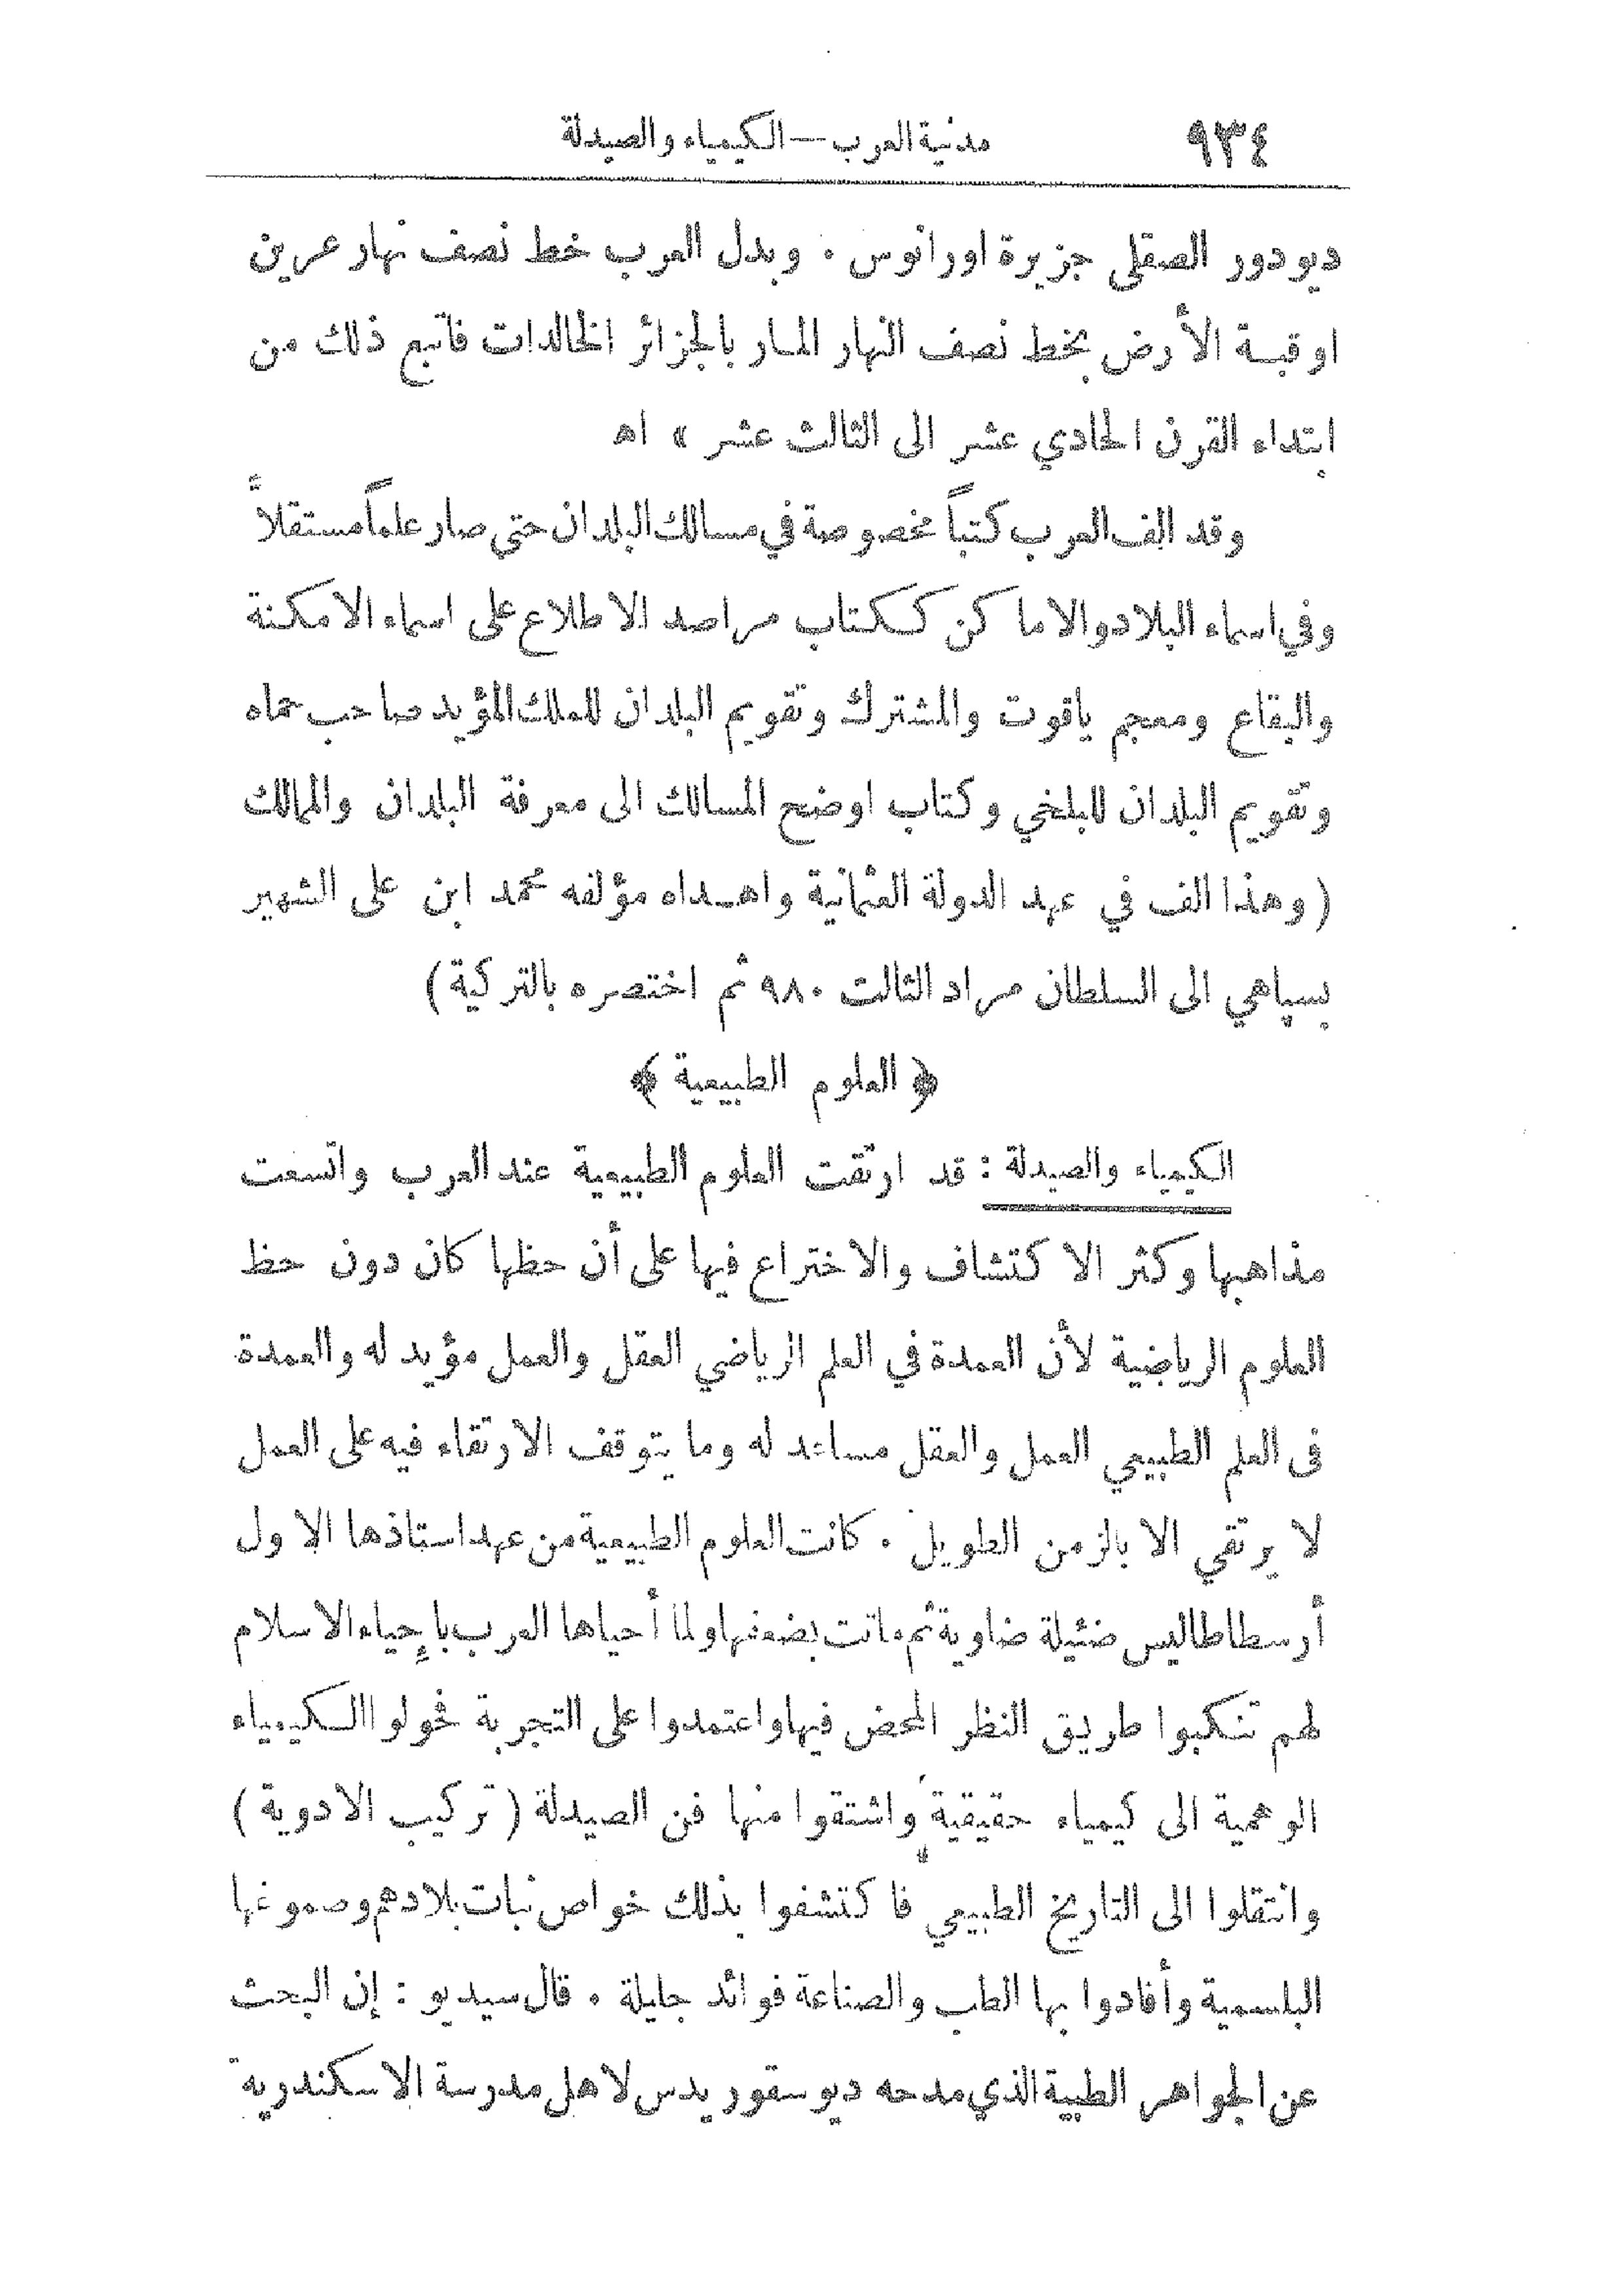 ٩٣٤ مدنية العرب — الكيمياء والصيدلة
ديودور الصقلى جزيرة اورانوس . وبدل العرب خط نصف نهار عرين
اوقبة الأرض بخط نصف النهار المار بالجزائر الخالدات فاتبع ذلك من
ابتداء القرن الحادي عشر الى الثالث عشر » اه
وقد الف العرب كتباً مخصوصة في مسالك البلدان حتى صار علماً مستقلاً
وفي اسماء البلاد والاماكن ككتاب مراصد الاطلاع على اسماء الامكنة
والبقاع ومعجم ياقوت والمشترك وتقويم البلدان للملك المؤيد صاحب حماه
وتقويم البلدان للبلخي وكتاب اوضح المسالك الى معرفة البلدان والممالك
( وهذا الف في عهد الدولة العثمانية واهداه مؤلفه محمد ابن على الشهير
بسپاهي الى السلطان مراد الثالث ٩٨٠ ثم اختصره بالتركية )
﴿ العلوم الطبيعية ﴾
الكيمياء والصيدلة : قد ارتقت العلوم الطبيعية عند العرب واتسعت
مذاهبها وكثر الاكتشاف والاختراع فيها على أن حظها كان دون حظ
العلوم الرياضية لأن العمدة في العلم الرياضي العقل والعمل مؤيد له والعمدة
فى العلم الطبيعي العمل والعقل مساعد له وما يتوقف الارتقاء فيه على العمل
لا يرتقي الا بالزمن الطويل . كانت العلوم الطبيعية من عهد استاذها الاول
أرسطاطاليس ضئيلة ضاوية ثم ماتت بضعفها ولما أحياها العرب بإحياء الاسلام
لهم تنكبوا طريق النظر المحض فيها واعتمدوا على التجربة فحولوا الكيمياء
الوهمية الى كيمياء حقيقية واشتقوا منها فن الصيدلة ( تركيب الادوية )
وانتقلوا الى التاريخ الطبيعي فاكتشفوا بذلك خواص نبات بلادهم وصموغها
البلسمية وأفادوا بها الطب والصناعة فوائد جليلة . قال سيديو : إن البحث
عن الجواهر الطبية الذي مدحه ديوسقوريدس لاهل مدرسة الاسكندرية